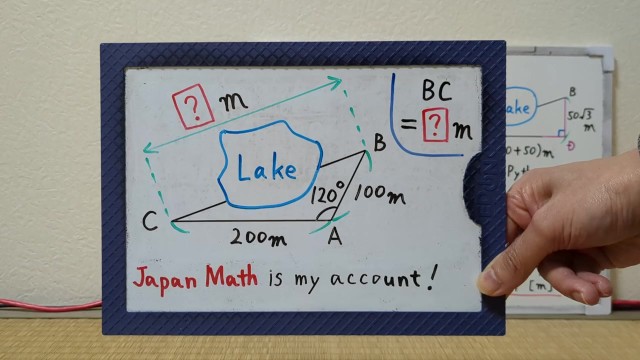 ? m
BC
= ? m
Lake
B
120° 100m
C
200m
A
Japan Math is my account!
ake
B
50√3
m
D
0+50)m
Pyth
[m]